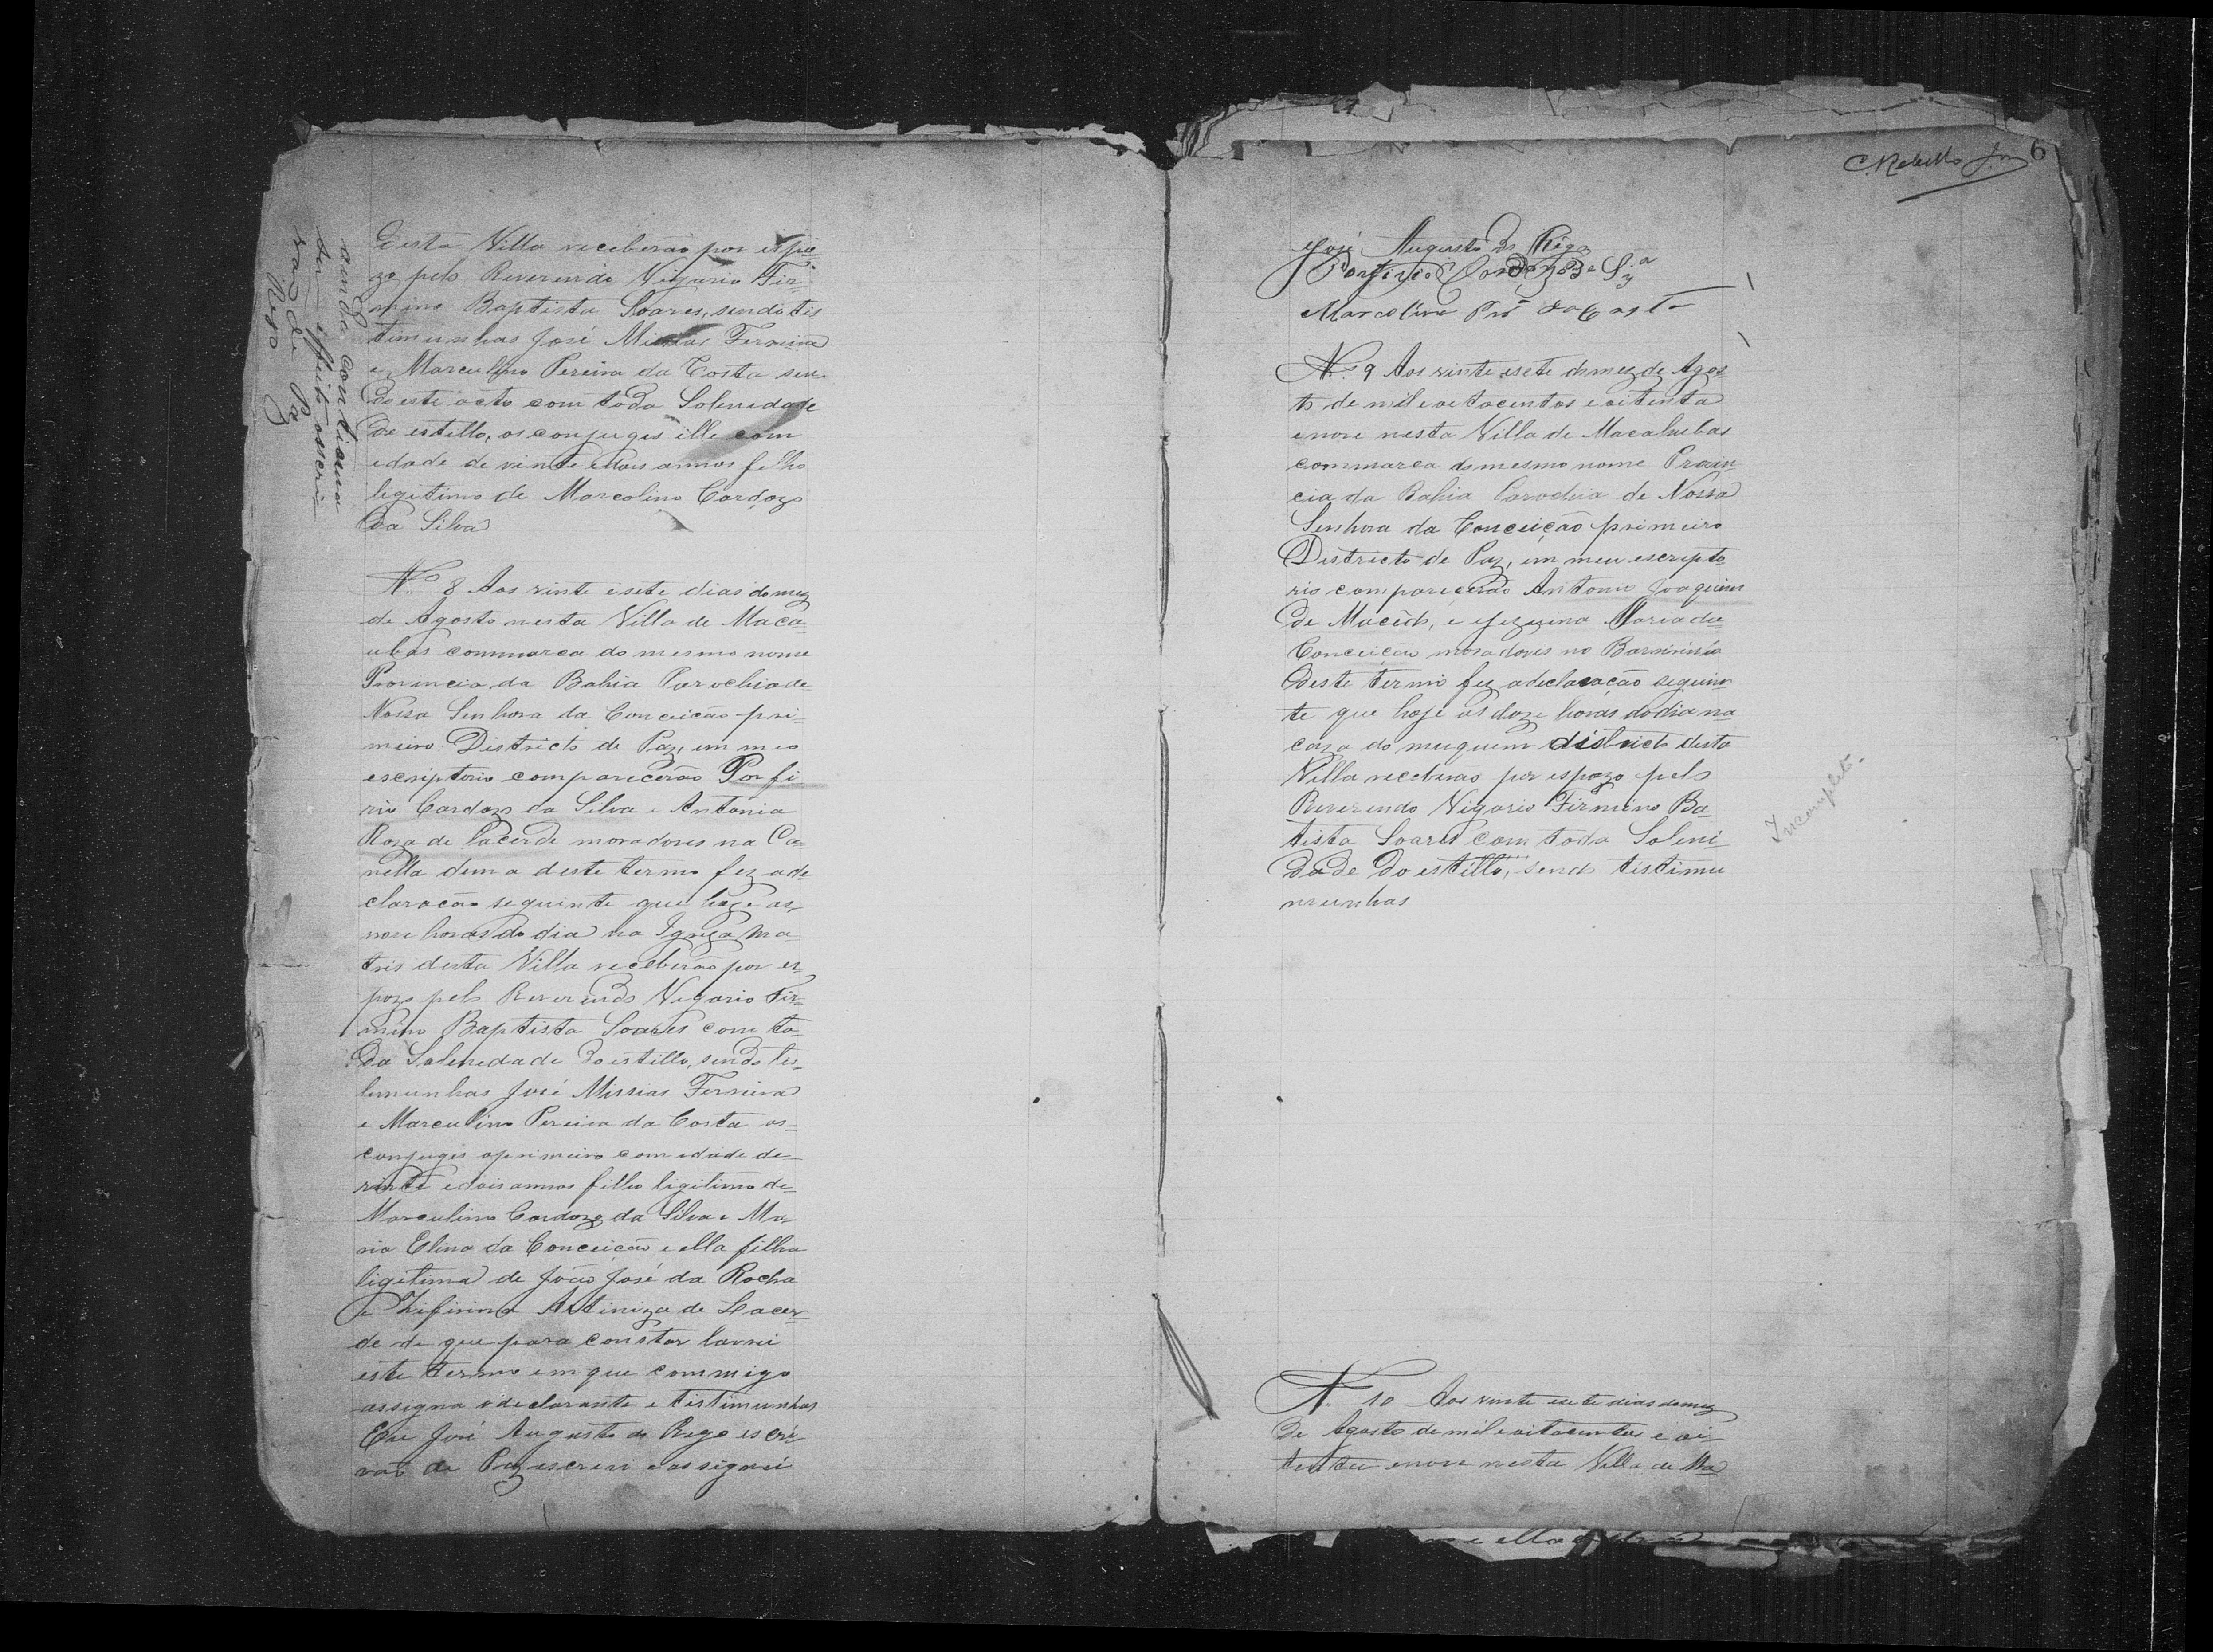 desta Villa receberão por espo
zo pelo Reverendo Vigario Fir
mino Baptista Soares, sendo tis
timunhas José Missias Ferreira
e Marculino Pereira da Costa sen
do este acto com toda Solenidade
de estillo, os conjuges elle com
edade de vinte e dois annos filho
legitimo de Marcolino Cardozo
da Silva
ainda continua
sem effeito o escri
vão de Paz
Rego
Nº 8 Aos vinte e sete dias do mez
de Agosto nesta Villa de Maca
ubas commarca do mesmo nome
Provincia da Bahia Parochia de
Nossa Senhora da Conceicão pri-
meiro Districto de Paz, em meo
escriptorio comparecerão Porfi
rio Cardozo da Silva e Antonia
Roza de Lacerde moradores na Ca
nella dema deste termo fez a de
claracão seguinte que hoje as
nove horas do dia na Igreja Ma
tris desta Villa receberão por es
pozo pelo Reverendo Vigario Fir=
mino Baptista Soares com to
da Solenedade do estillo, sendo tes
temunhas José Missias Ferreira
e Marculino Pereira da Costa os=
conjuges o primeiro com edade de
vinte e dois annos filho legitimo de
Marculino Cardozo da Silva e Ma
ria Elina da Conceicão e ella filha
legitima de João José da Rocha
e Zifirina Artiniza de Lacer
de de que para constar lavrei
este termo em que commigo
assigna o declarante e tistimunhas
Eu José Augusto do Rego escri
vão de Paz escrevi e assignei
6
José Augusto do Rego
Porfirio Cardozo da Sª
Marcolino Prª da Cast
Nº 9 Aos vinte e sete do mez de Agos
to de mil e oitocentos e oitenta
e nove nesta Villa de Macahubas
commarca do mesmo nome Provin
cia da Bahia Parochia de Nossa
Senhora da Conceição primeiro
Districto de Paz, em meu escripto
rio comparecerão Antonio Joaquim
de Macêdo, e Jezuina Maria da
Conceição moradores no
deste termo fez a declaração seguin
te que hoje as doze horas do dia na
caza do muquem districto desta
Villa receberão por espozo pelo
Reverendo Vigario Firmino Ba
tista Soares com toda Soleni
dade do estillo, sendo tistimu
munhas
Incompleto.
N. 10 Aos vinte e sete dias do mez
de Agosto de mil e oitocentos e oi
tenta e nove nesta Villa de Ma